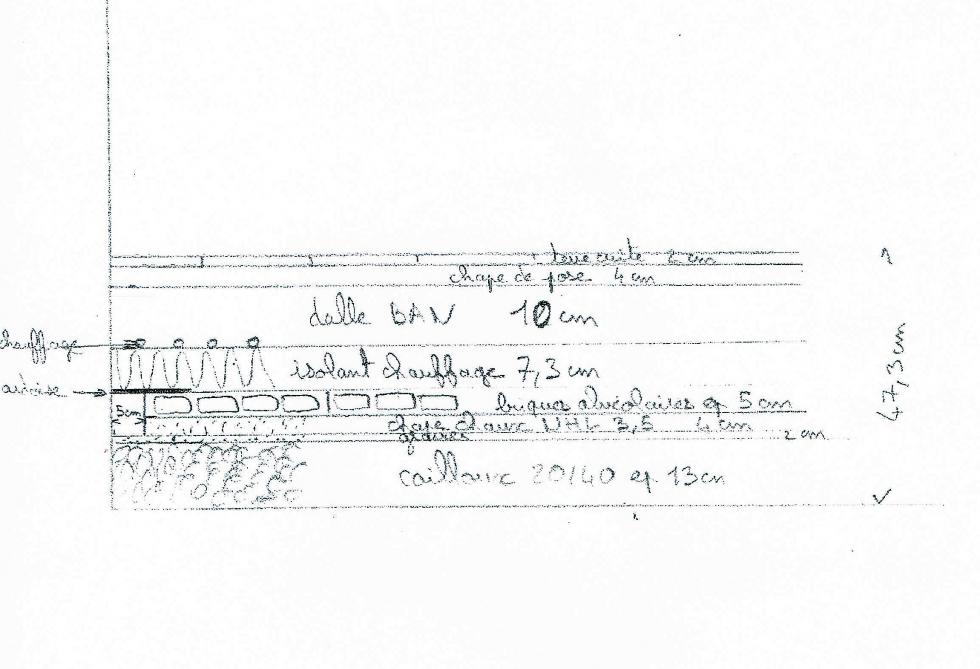 terre cuite 2 cm
chape de pose 4 cm
dalle BAN 10 cm
chauffage
isolant chauffage 7,3 cm
ardoise
5cm
briques alvéolaires ep 5 cm
chape chaux NHL 3,5 4 cm
2 cm
cailloux 20/40 ep 13cm
47,3cm